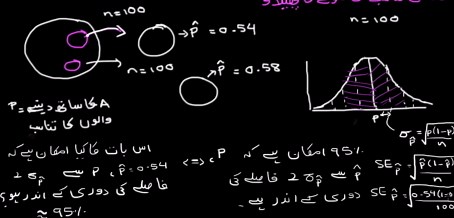 n=100
p̂ = 0.54
n=100
p̂ = 0.58
P = A کا ساتھ دینے
والوں کا تناسب
P
σp̂ = √p(1-p)/n
اس بات کا کیا امکان ہے کہ
p̂ = 0.54 ، P سے 2σp̂
فاصلے کی دوری کے اندر ہو؟
≈ 95%
<=>
95% امکان ہے کہ P
p̂ سے 2σp̂ فاصلے کی
دوری کے اندر ہے۔
SEp̂ = √p̂(1-p̂)/n
SEp̂ = √0.54(1-0
100